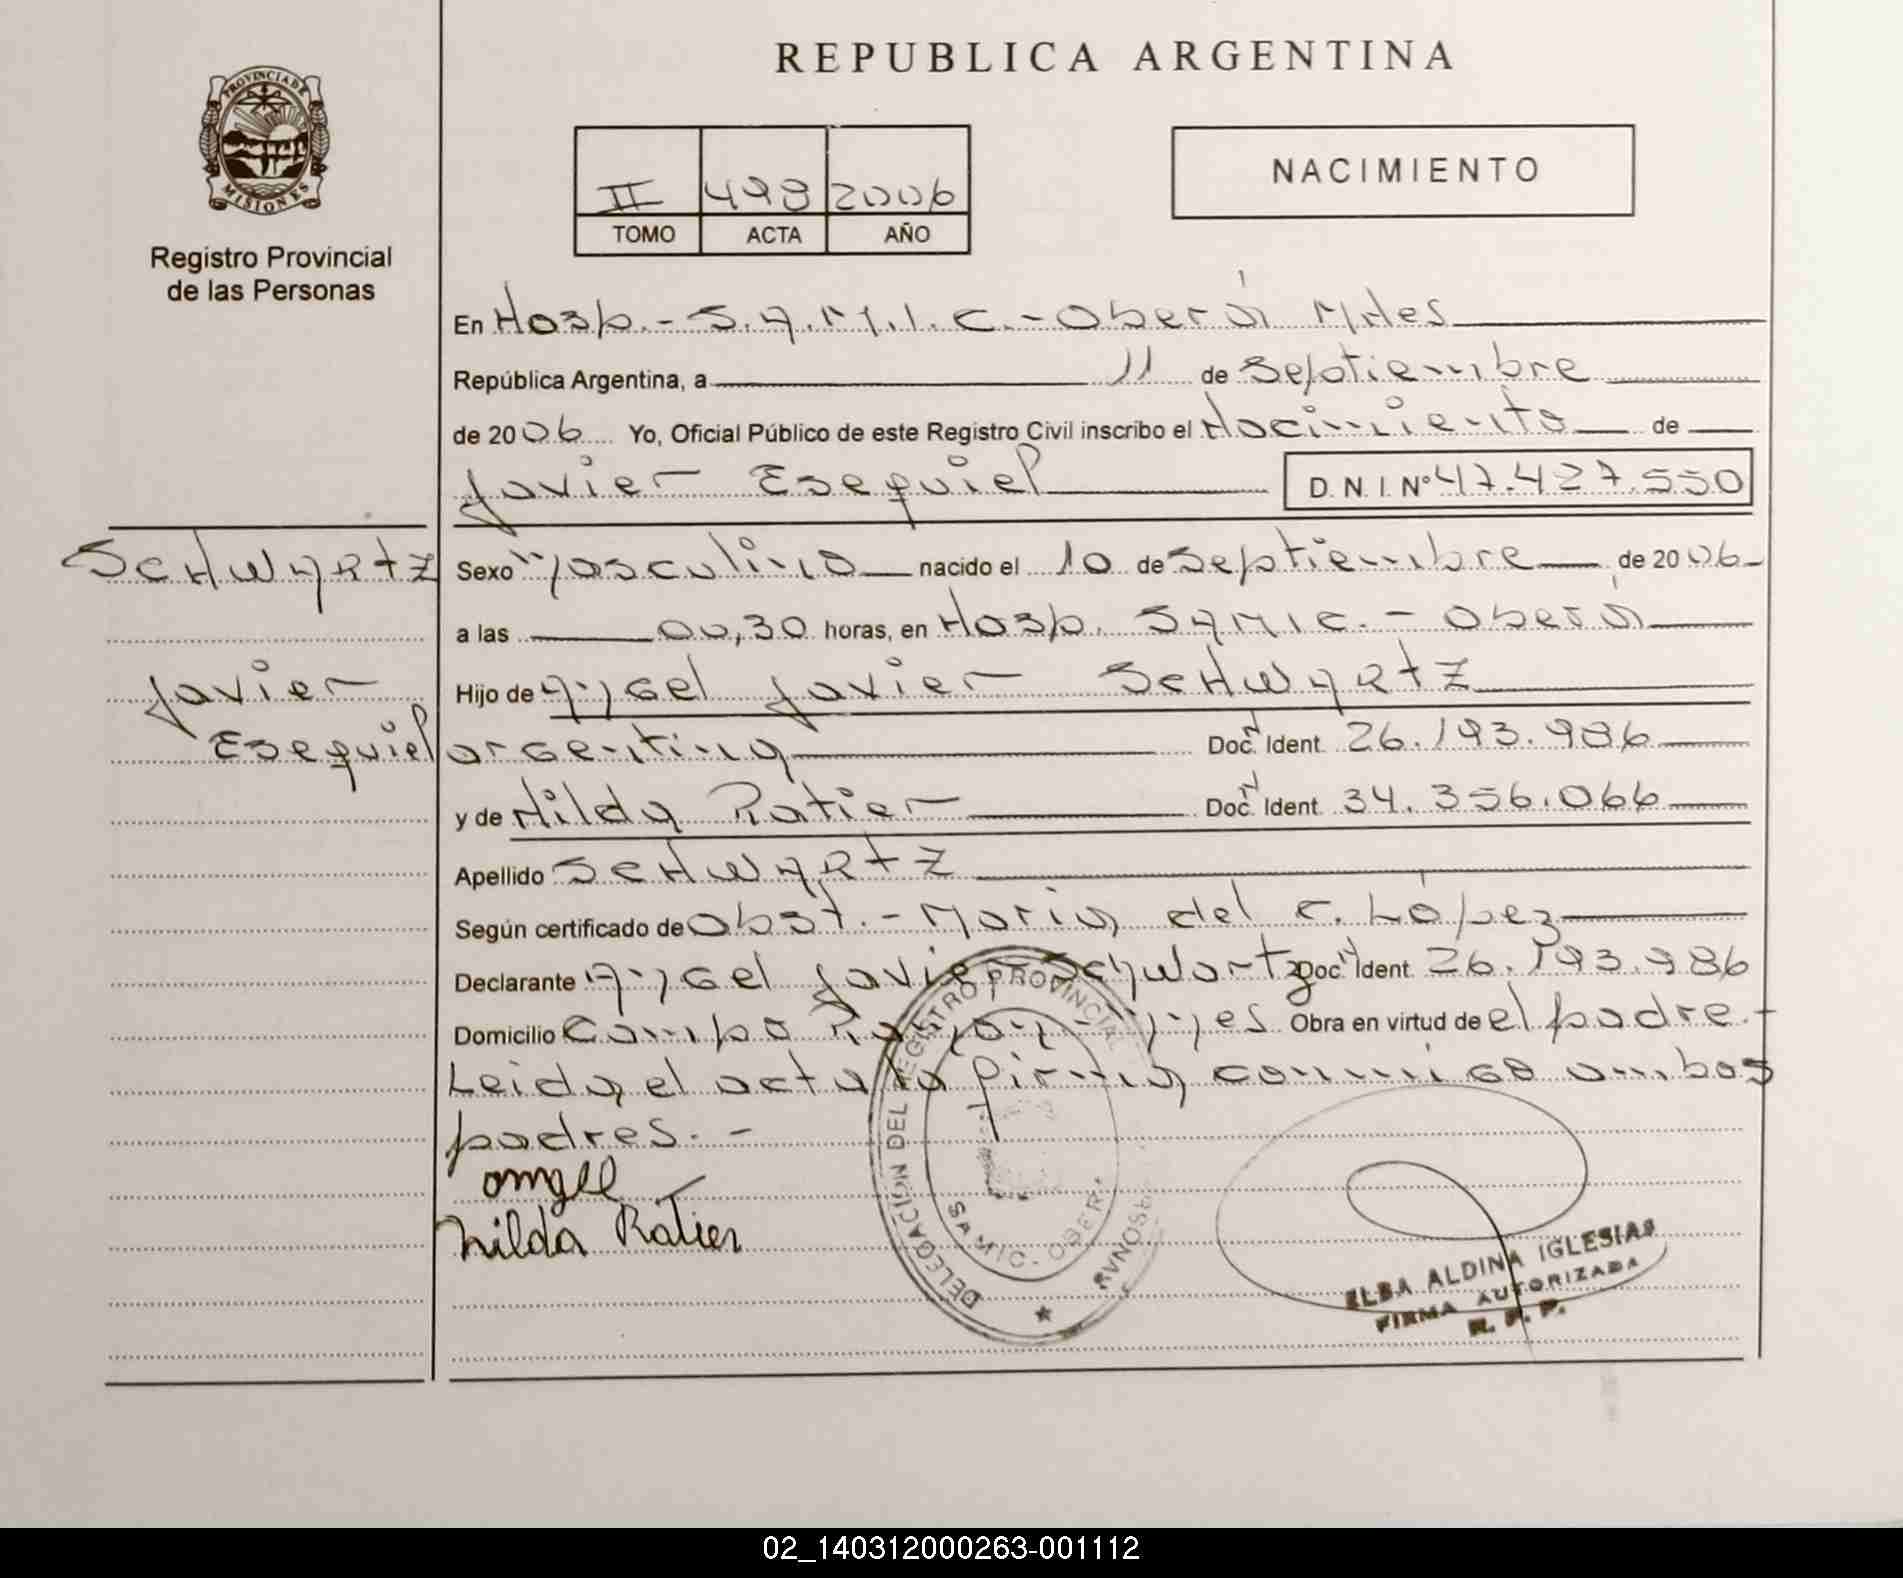 REPUBLICA ARGENTINA
PROVINCIA DE
MISIONES
Registro Provincial
de las Personas
II 498 2006
TOMO ACTA AÑO
NACIMIENTO
En Hosp.- S.A.M.I.C.- Oberá Mnes
República Argentina, a 11 de Septiembre
de 2006 Yo, Oficial Público de este Registro Civil inscribo el Nacimiento de
Javier Esequiel D.N.I. Nº 47.427.550
SCHWARTZ
Javier
Esequiel
Sexo Masculino nacido el 10 de Septiembre de 2006
a las 00,30 horas, en Hosp. SAMIC.- Oberá
Hijo de Angel Javier SCHWARTZ
argentina Doc. Ident. 26.193.986
y de Hilda Ratier Doc. Ident. 34.356.066
Apellido SCHWARTZ
Según certificado de Obst.- Maria del C. López
Declarante Angel Javier Schwartz Doc. Ident. 26.193.986
Domicilio Campo Ramon - Mnes Obra en virtud de el padre.-
Leida el acta la firma conmigo ambos
padres.-
angel
hilda Ratier
DELEGACIÓN DEL REGISTRO PROVINCIAL
SAMIC - OBERA
ELBA ALDINA IGLESIAS
FIRMA AUTORIZADA
R. P. P.
02_140312000263-001112